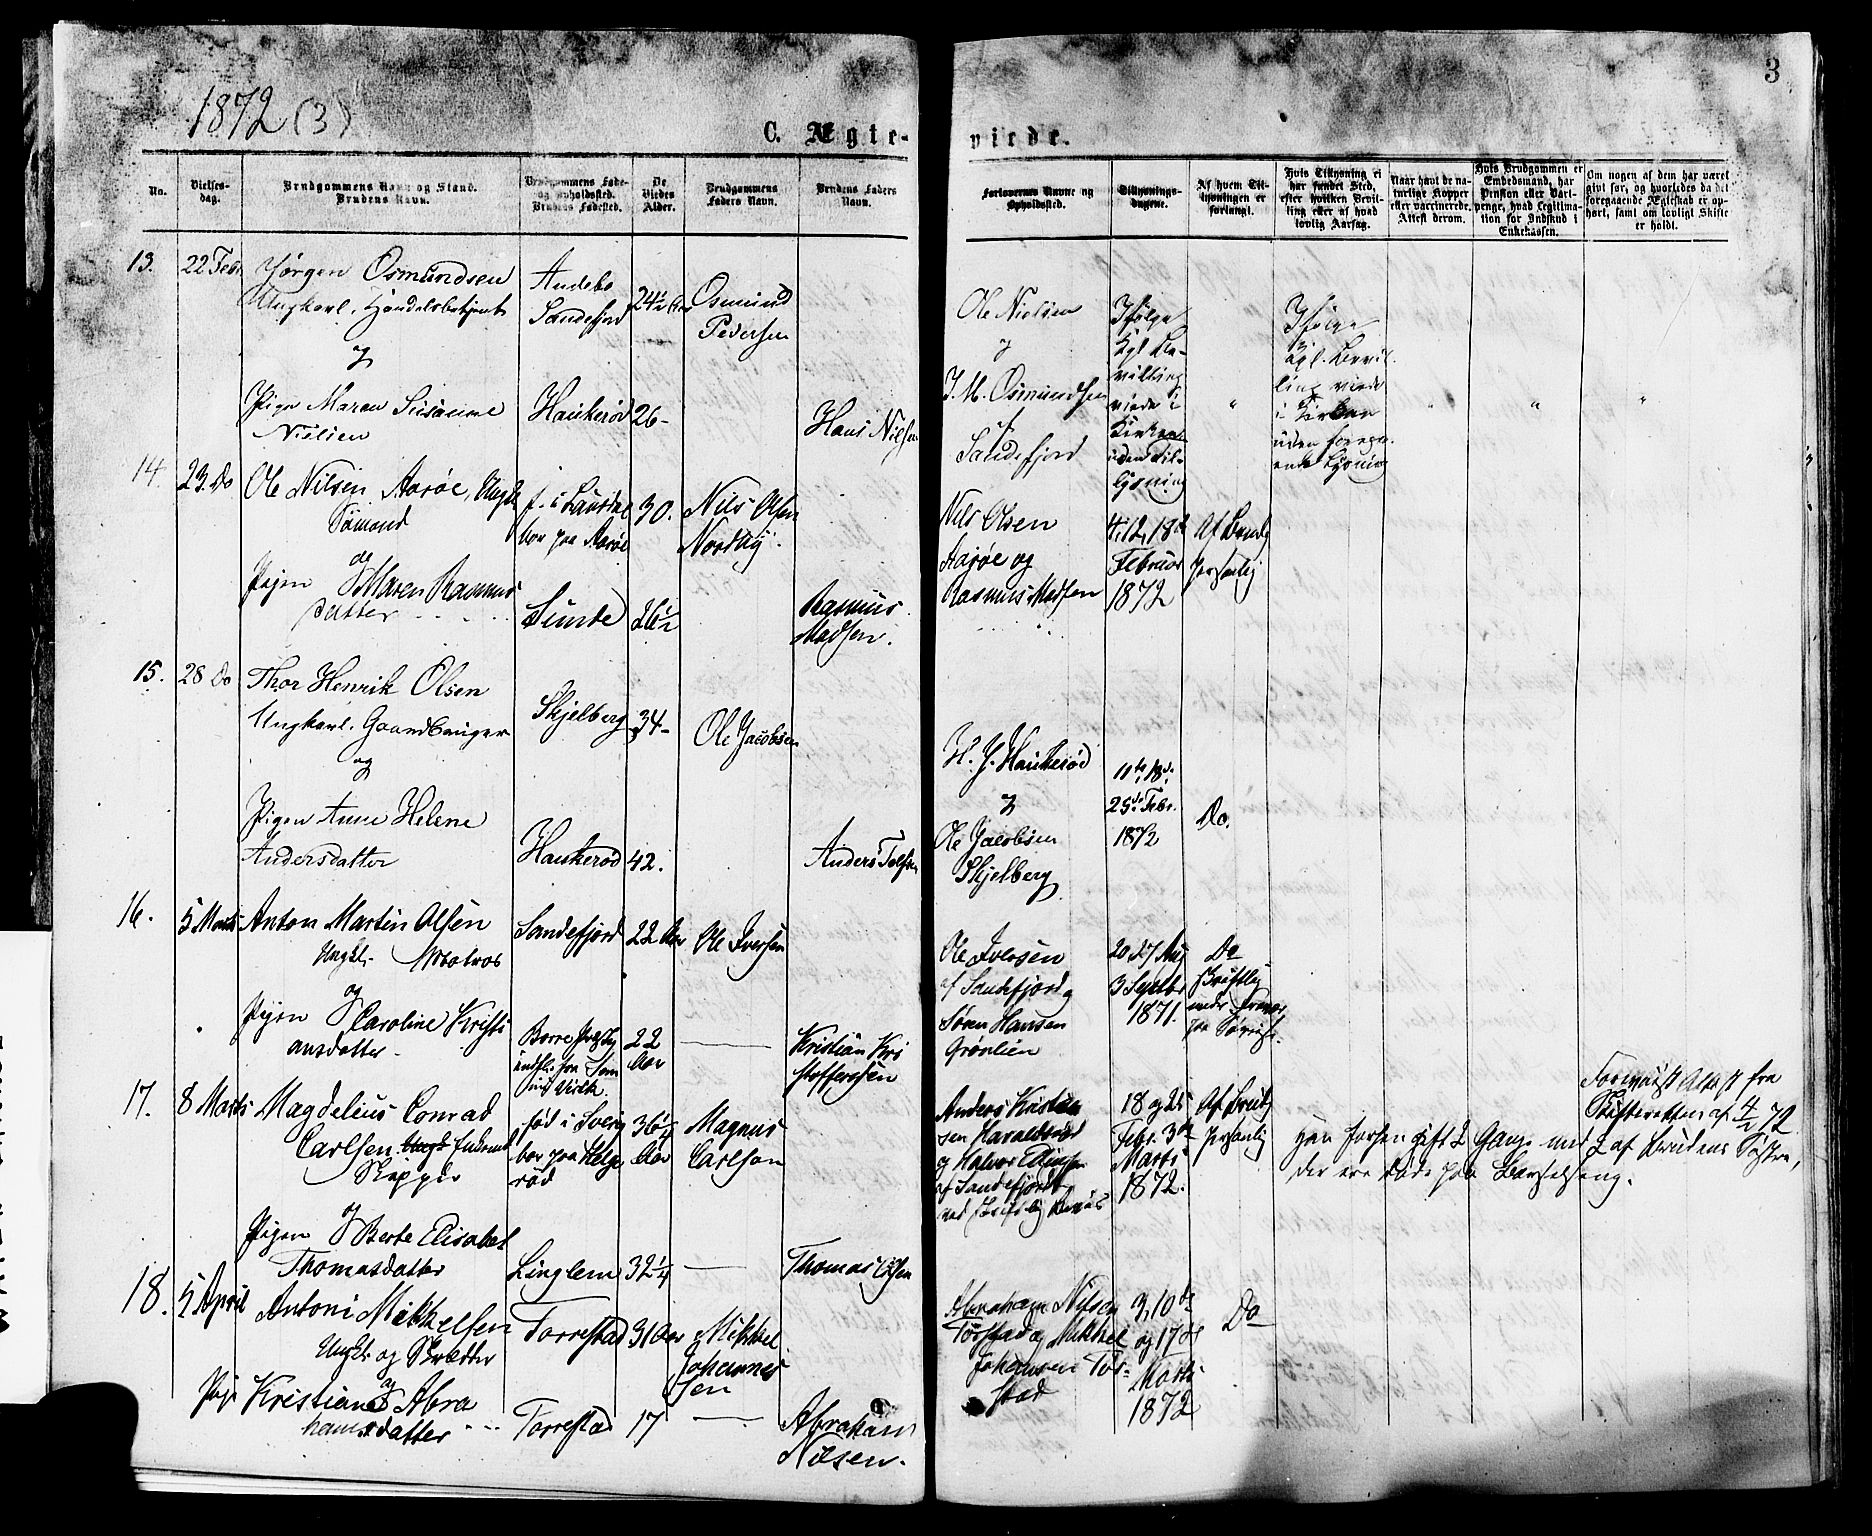 1872 (3)
3
C. Ægte-
viede.
No.
Vielses-
dag.
Brudgommens Navn og Stand.
Brudens Navn.
Brudgommens Føde-
og Opholdssted.
Brudens Fødested.
De
Viedes
Alder.
Brudgommens
Faders Navn.
Brudens Faders
Navn.
Forlovernes Navne og
Opholdssted.
Tillysnings-
dagene.
Af hvem Til-
lysningen er
forlangt.
Hvis Tillysning ei
har fundet Sted,
efter hvilken Bevil-
ling eller af hvad
lovlig Aarsag.
Naar havt de na-
turlige Kopper
eller vaccinerede.
Attest derom.
Hvis Brudgommen er
Embedsmand, har
Pension eller Var-
penge, hvad Legitima-
tion for Indskud i
Enkekassen.
Om nogen af dem har været
gift før, og hvorledes da det
foregaaende Ægteskab er op-
hørt, samt om lovligt Skifte
er holdt.
13.
22 Febr
Jørgen Osmundsen
Ungkarl, Handelsbetjent
og
Pigen Maren Susanne
Nielsen
Andebo
Sandefjord
Haukerød
24½ Aar
26
Osmund
Pedersen
Hans Nilsen
Ole Nielsen
og
J. M. Osmundsen
Sandefjord
Ifølge
Kgl Be-
villing
viede i
Kirken
uden til-
lysning
Ifølge
kgl. Bevil-
ling viede
i Kirken
uden forega-
ende Lysning
14.
23. Do
Ole Nilsen Aarøe, Ungk.
Sømand
og
Pigen Maren Rasmus
datter
f. i Laurdal
bor paa Aarøe
Sunde
30.
26½
Nils Olsen
Nordby.
Rasmus
Madsen.
Nils Olsen
Aarøe og
Rasmus Madsen
4, 12, 18de
Februar
1872
Af Brudg
personlig
15.
28 Do
Thor Henrik Olsen
Ungkarl. Gaardbruger
og
Pigen Anne Helene
Andersdatter
Skjelberg
Haukerød
34
42.
Ole Jacobsen
Anders
H. J. Haukerød
og
Ole Jacobsen
Skjelberg
11te, 18de,
25de Febr.
1872
Do.
16.
5 Marts
Anton Martin Olsen
Ungk. Matros
og
Pigen Caroline Kristi
ansdatter
Sandefjord
Borre Præstg
22 Aar
22
Aar
Ole Iversen
Kristian Kri
stoffersen
Ole Iversen
af Sandefjord og
Søren Hansen
Grønlien
20 27 Aug
3 Septbr
1871.
Do
skriftlig
17.
8 Marts
Magdelius Conrad
Carlsen Enkemand
Skipper
og
Pigen Berte Elisabet
Thomasdatter
fød i Sverig
bor paa Helge
rød
Linglem
36¼
Aar
32¼
Magnus
Carlson
Thomas Olsen
Anders Kristian
sen Haraldsrød
og Halvor
af Sandefjord
18 og 25
Febr. 3de
Marts
1872.
Af Brudg
personlig
Forevist Attest fra
Skifteretten af 4/2 72
Han forhen gift 2 Gange med 2 af Brudens Søstre,
der ere døde paa Barselseng.
18.
5 April
Antoni Mikkelsen
Ungk. og Skrædder
og
Pige Kristiane Abra
hamsdatter
Torrestad
Torrestad
31 Aar
17
Mikkel
Johannes
sen
Abraham
Nilsen.
Abraham Nilsen
Torstad og Mikkel
Johansen Tor-
stad
3, 10de
og 17de
Marts
1872
Do